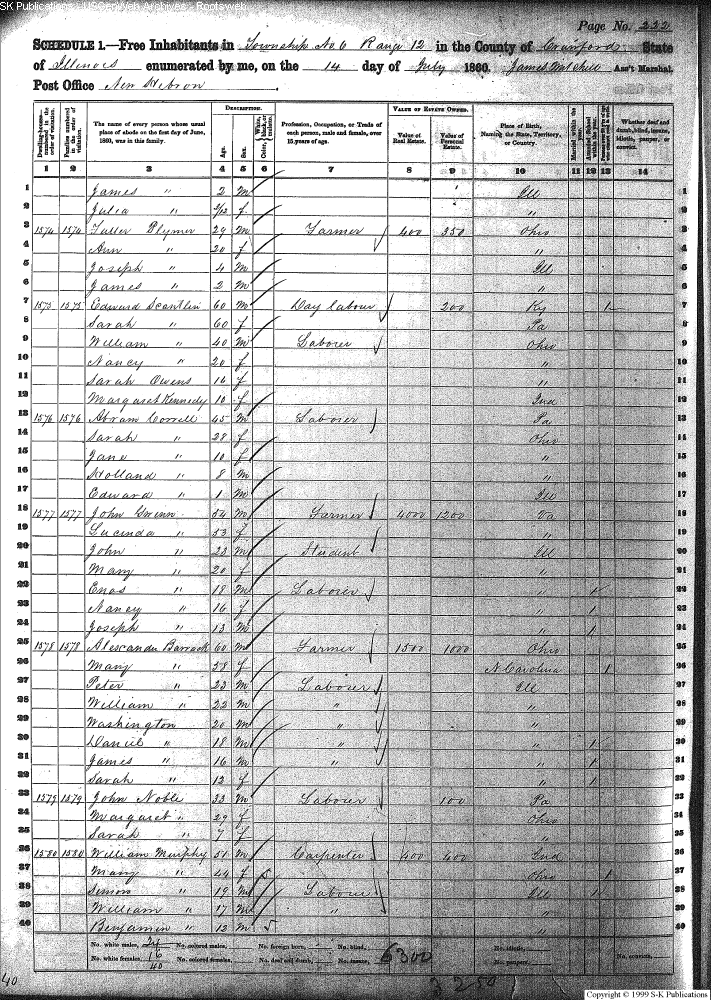 SK Publications - USGenWeb Archives - Rootsweb
Page No. 222
SCHEDULE 1.—Free Inhabitants in Township No 6 Range 12 in the County of Crawford State
of Illinois enumerated by me, on the 14 day of July 1860. James Ass't Marshal.
Post Office New Hebron
Dwelling-houses numbered in the order of visitation.
Families numbered in the order of visitation.
The name of every person whose usual place of abode on the first day of June, 1860, was in this family.
DESCRIPTION.
Age.
Sex.
Color, White, black, or mulatto.
Profession, Occupation, or Trade of each person, male and female, over 15 years of age.
VALUE OF ESTATE OWNED.
Value of Real Estate.
Value of Personal Estate.
Place of Birth, Naming the State, Territory, or Country.
Married within the year.
Attended School within the year.
Whether deaf and dumb, blind, insane, idiotic, pauper, or convict.
1 2 3 4 5 6 7 8 9 10 11 12 13 14
1 James " 2 m Ill 1
2 Julia " 2/12 f " 2
3 1574 1574 Fuller Plymer 29 m Farmer 400 350 Ohio 3
4 Ann " 20 f " 4
5 Joseph " 4 m Ill 5
6 James " 2 m " 6
7 1575 1575 Edward Scantlin 60 m Day labour 200 Ky 1 7
8 Sarah " 60 f Pa 8
9 William " 40 m Laborer Ohio 9
10 Nancy " 20 f " 10
11 Sarah Owens 16 f " 11
12 Margaret Kennedy 10 f Ind 12
13 1576 1576 Abram Correll 45 m Laborer Pa 13
14 Sarah " 28 f Ohio 14
15 Jane " 10 f " 15
16 Holland " 8 m " 16
17 Edward " 1 m Ill 17
18 1577 1577 John Gwinn 54 m Farmer 4000 1200 Va 18
19 Lucinda " 53 f " 19
20 John " 23 m Student Ill 20
21 Mary " 20 f " 21
22 Enos " 18 m Laborer " 1 22
23 Nancy " 16 f " 1 23
24 Joseph " 13 m " 1 24
25 1578 1578 Alexander Barrack 60 m Farmer 1500 1000 Ohio 25
26 Mary " 58 f N Carolina 1 26
27 Peter " 23 m Laborer Ill 27
28 William " 22 m " " 28
29 Washington 20 m " " 29
30 Daniel " 18 m " " 1 30
31 James " 16 m " " 1 31
32 Sarah " 12 f " 1 32
33 1579 1579 John Noble 33 m Labour 100 Pa 33
34 Margaret " 29 f Ohio 34
35 Sarah " 7 f " 35
36 1580 1580 William Murphy 51 m Carpenter 400 400 Ind 36
37 Mary " 44 f Ohio 1 37
38 Simon " 19 m Labour Ill 1 38
39 William " 17 m " " 39
40 Benjamin " 12 m " 40
No. white males, 24 No. colored males, No. foreign born, No. blind, No. idiotic,
No. white females, 16 No. colored females, No. deaf and dumb, No. insane, 6300 No. paupers, No. convicts,
40
40
3250
Copyright © 1999 S-K Publications